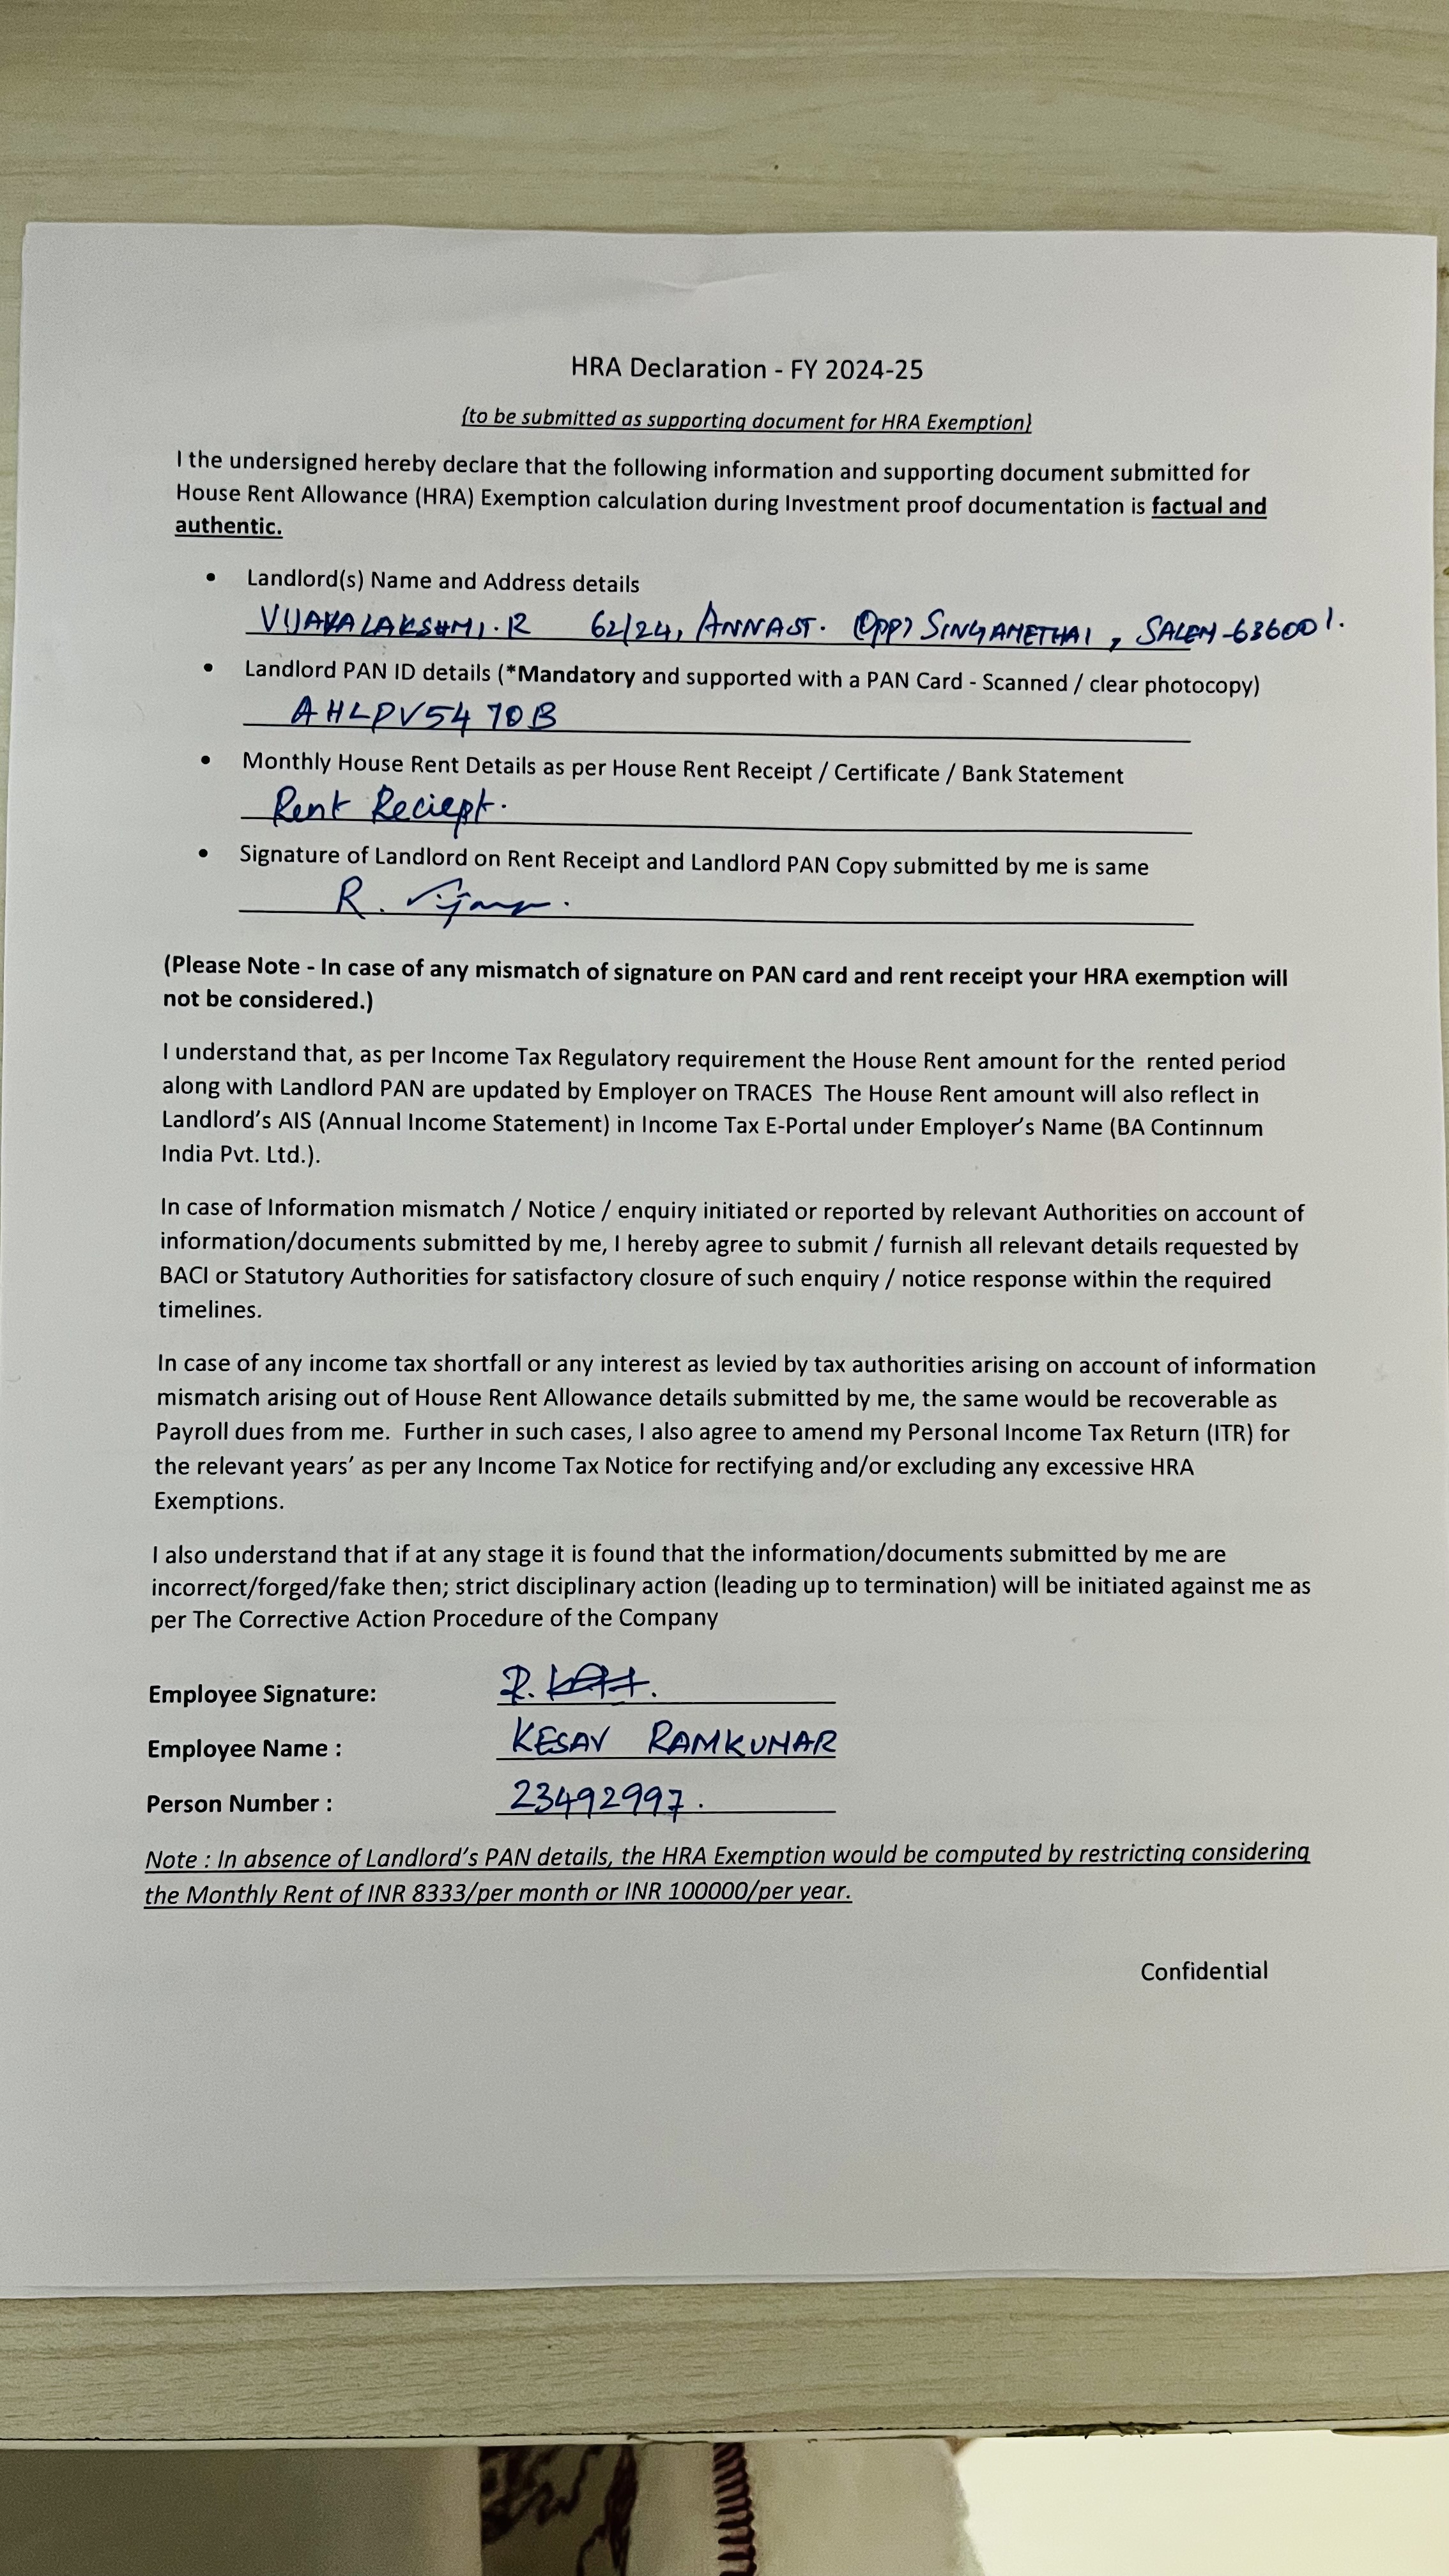 HRA Declaration - FY 2024-25
{to be submitted as supporting document for HRA Exemption}
I the undersigned hereby declare that the following information and supporting document submitted for
House Rent Allowance (HRA) Exemption calculation during Investment proof documentation is factual and
authentic.
• Landlord(s) Name and Address details
VIJAYALAKSHMI. R 62/24, ANNA ST. (OPP) SINGAMETHAI, SALEM-636001.
• Landlord PAN ID details (*Mandatory and supported with a PAN Card - Scanned / clear photocopy)
AHLPV5470B
• Monthly House Rent Details as per House Rent Receipt / Certificate / Bank Statement
Rent Reciept.
• Signature of Landlord on Rent Receipt and Landlord PAN Copy submitted by me is same
R.
(Please Note - In case of any mismatch of signature on PAN card and rent receipt your HRA exemption will
not be considered.)
I understand that, as per Income Tax Regulatory requirement the House Rent amount for the rented period
along with Landlord PAN are updated by Employer on TRACES The House Rent amount will also reflect in
Landlord's AIS (Annual Income Statement) in Income Tax E-Portal under Employer's Name (BA Continnum
India Pvt. Ltd.).
In case of Information mismatch / Notice / enquiry initiated or reported by relevant Authorities on account of
information/documents submitted by me, I hereby agree to submit / furnish all relevant details requested by
BACI or Statutory Authorities for satisfactory closure of such enquiry / notice response within the required
timelines.
In case of any income tax shortfall or any interest as levied by tax authorities arising on account of information
mismatch arising out of House Rent Allowance details submitted by me, the same would be recoverable as
Payroll dues from me. Further in such cases, I also agree to amend my Personal Income Tax Return (ITR) for
the relevant years' as per any Income Tax Notice for rectifying and/or excluding any excessive HRA
Exemptions.
I also understand that if at any stage it is found that the information/documents submitted by me are
incorrect/forged/fake then; strict disciplinary action (leading up to termination) will be initiated against me as
per The Corrective Action Procedure of the Company
Employee Signature: R.
Employee Name : KESAV RAMKUMAR
Person Number : 23492997.
Note : In absence of Landlord's PAN details, the HRA Exemption would be computed by restricting considering
the Monthly Rent of INR 8333/per month or INR 100000/per year.
Confidential